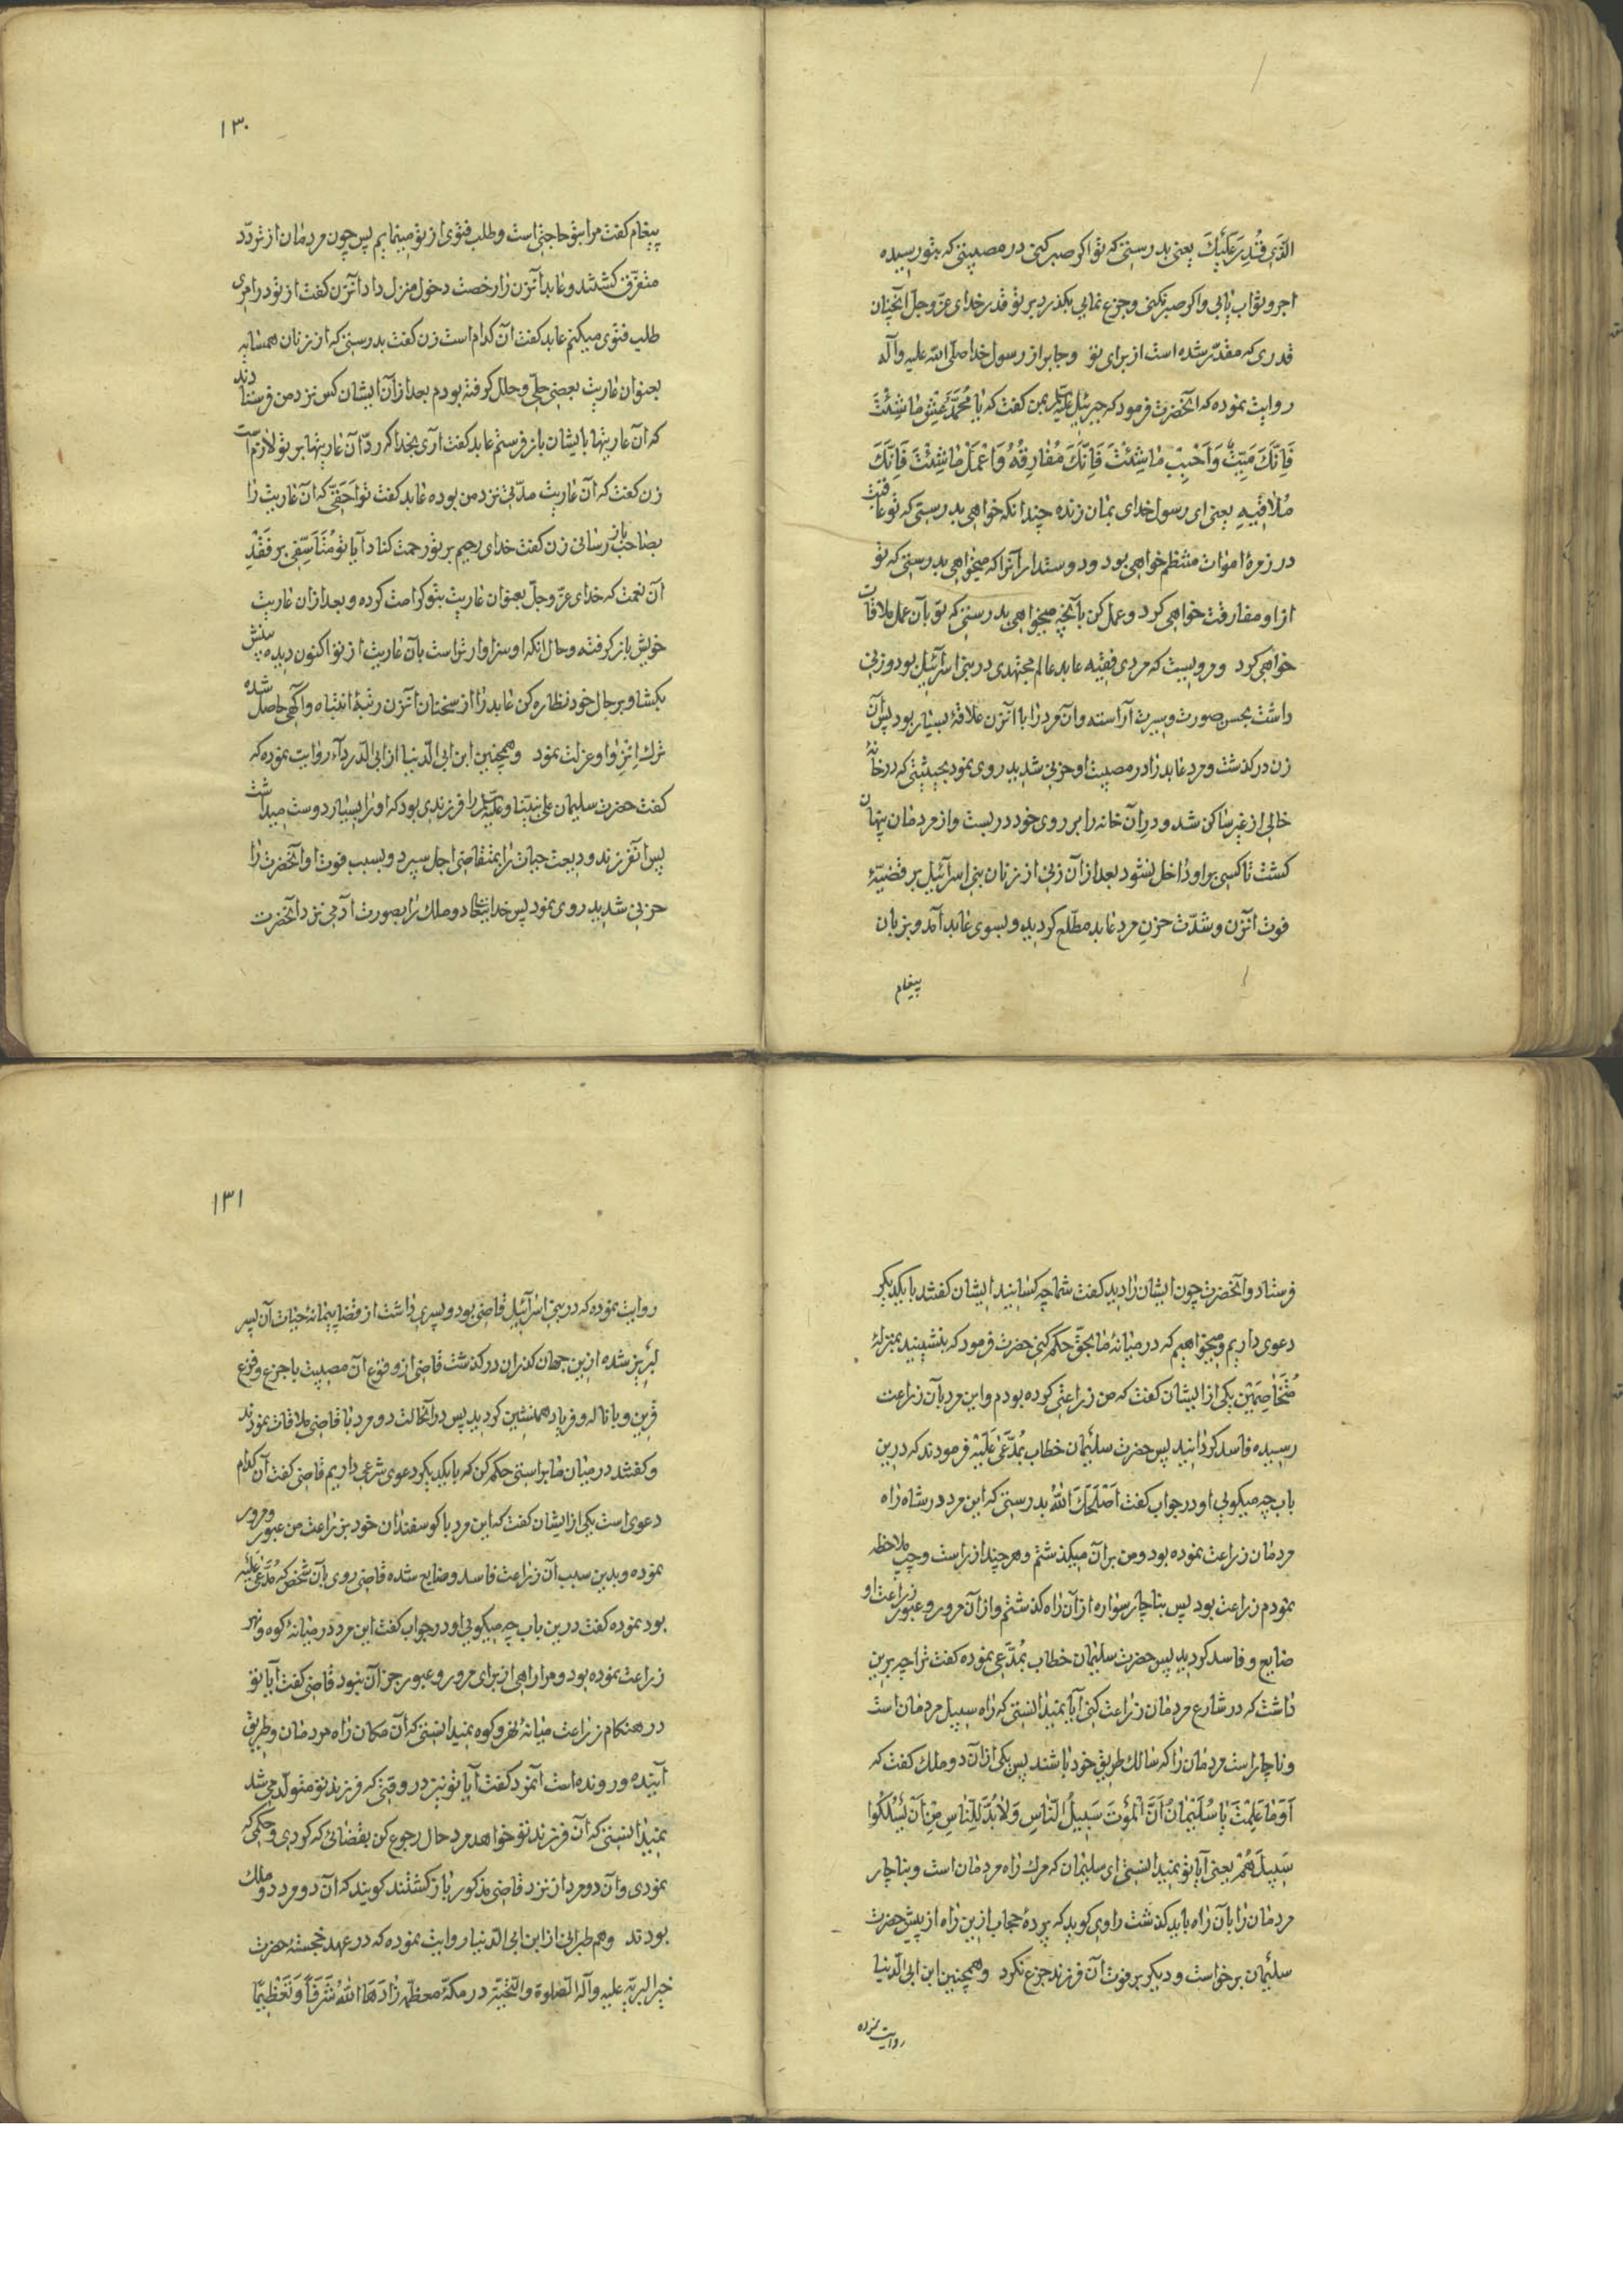 الَّذی قُدِّرَ عَلَیْكَ یعنی بدرستی که تو اکر صبر کنی در مصیبتی که بتو رسیده
اجر و ثواب یابی و اکر صبر نکنی و جزع نمایی بکذرد بر تو قدر خدای عزّ وجلّ آنچنان
قدری که مقدّر شده است از برای تو و جابر از رسول خدا صلّی الله علیه وآله
روایت نموده که آنحضرت فرمود که جبرئیل علیه السلام بمن کفت که یا مُحَمَّدُ عِشْ مٰا شِئْتَ
فَاِنَّكَ مَیِّتٌ وَاَحْبِبْ مٰا شِئْتَ فَاِنَّكَ مُفٰارِقُهُ وَاعْمَلْ مٰا شِئْتَ فَاِنَّكَ
مُلاٰقیهِ یعنی ای رسول خدای بمان زنده چندانکه خواهی بدرستی که تو عاقبت
در زمرهٔ اموات منتظم خواهی بود و دوستدار آنرا که میخواهی بدرستی که تو
از او مفارقت خواهی کرد و عمل کن بآنچه میخواهی بدرستی که تو بآن عمل ملاقات
خواهی کرد و مرویست که مردی فقیه عابد عالم مجتهدی در بنی اسرآئیل بود و زنی
داشت بحسن صورت و سیرت آراسته و آن مرد را با آنزن علاقهٔ بسیار بود پس آن
زن درکذشت و مرد عابد را در مصیبت او حزنی شدید روی نمود بحیثیتی که در خانهٔ
خالی از غیر ساکن شد و درِ آن خانه را بر روی خود در بست و از مردمان پنهان
کشت تا کسی بر او داخل نشود بعد از آن زنی از زنان بنی اسرآئیل بر قضیّهٔ
فوت آنزن و شدّت حزنِ مرد عابد مطّلع کردیده و بسوی عابد آمد و بزبان
پیغام
۱۳۰
پیغام کفت مرا بتو حاجتی است و طلب فتوی از تو مینمایم پس چون مردمان از تردّد
متفرّق کشتند و عابد آنزن را رخصت دخول منزل داد آنزن کفت از تو در امری
طلب فتوی میکنم عابد کفت آن کدام است زن کفت بدرستی که از زنان همسایه
بعنوان عاریت بعضی حلّی و حلل کرفته بودم بعد از آن ایشان کس نزد من فرستادند
که آن عاریتها بایشان باز فرستم عابد کفت آری بخدا که ردّ آن عاریتها بر تو لازم است
زن کفت که آن عاریت مدّتی نزد من بوده عابد کفت تو اَحَقّی که آن عاریت را
بصاحب باز رسانی زن کفت خدای رحیم بر تو رحمت کناد آیا تو مُتَاَسِّفی بر فَقْدِ
آن نعمت که خدای عزّ وجلّ بعنوان عاریت بتو کرامت کرده و بعد از آن عاریت
خویش باز کرفته و حال آنکه او سزاوارتر است بآن عاریت از تو اکنون دیده بینش
بکشا و بر حال خود نظاره کن عابد را از سخنان آنزن رتبهٔ انتباه و آکهی حاصل شده
ترك اِنزوا و عزلت نمود وهمچنین ابن ابی الدّنیا از ابی الدّردآء روایت نموده که
کفت حضرت سلیمان علی نبیّنا وعلیه السلام را فرزندی بود که او را بسیار دوست میداشت
پس آنفرزند ودیعت حیات را بمتقاضی اجل سپرد و بسبب فوت او آنحضرت را
حزنی شدید روی نمود پس خدایتعالی دو ملك را بصورت آدمی نزد آنحضرت
فرستاد و آنحضرت چون ایشان را دید کفت شما چه کسانید ایشان کفتند با یکدیکر
دعوی داریم و میخواهیم که در میانهٔ ما بحقّ حکم کنی حضرت فرمود که بنشینید بمنزلهٔ
مُتَخٰاصِمَیْن یکی از ایشان کفت که من زراعتی کرده بودم و این مرد بآن زراعت
رسیده فاسد کردانید پس حضرت سلیمان خطاب بمُدَّعیٰ عَلَیْهِ فرمودند که درین
باب چه میکویی او در جواب کفت اَصْلَحَكَ اللّٰهُ بدرستی که این مرد در شاه راه
مردمان زراعت نموده بود و من بر آن میکذشتم و هر چند از راست و چپ ملاحظه
نمودم زراعت بود پس بناچار سواره از آن راه کذشتم و از آن مرور و عبور زراعت او
ضایع و فاسد کردید پس حضرت سلیمان خطاب بمُدَّعی نموده کفت ترا چه برین
داشت که در شارع مردمان زراعت کنی آیا نمیدانستی که راه سبیل مردمان است
و ناچار است مردمان را که سالك طریق خود باشند پس یکی از آن دو ملك کفت که
اَوَمٰا عَلِمْتَ یٰا سُلَیْمٰانُ اَنَّ الْمَوْتَ سَبیلُ النّٰاسِ وَلاٰبُدَّ لِلنّٰاسِ مِنْ اَنْ یَسْلُکُوا
سَبیلَهُمْ یعنی آیا تو نمیدانستی ای سلیمان که مرك راه مردمان است و بناچار
مردمان را بآن راه باید کذشت راوی کوید که پردهٔ حجاب ازین راه از پیش حضرت
سلیمان برخواست و دیکر بر فوت آن فرزند جزع نکرد وهمچنین ابن ابی الدّنیا
روایت نموده
۱۳۱
روایت نموده که در بنی اسرآئیل قاضی بود و پسری داشت از قضا پیمانهٔ حیات آن پسر
لبریز شده ازین جهان کذران درکذشت قاضی از وقوع آن مصیبت با جزع و فزع
قرین و با ناله و فریاد همنشین کردید پس در آنحالت دو مرد با قاضی ملاقات نمودند
و کفتند در میان ما براستی حکم کن که با یکدیکر دعوی شرعی داریم قاضی کفت آن کدام
دعوی است یکی از ایشان کفت که این مرد با کوسفندان خود بزراعت من عبور و مرور
نموده و بدین سبب آن زراعت فاسد و ضایع شده قاضی روی بآن شخص که مُدَّعیٰ عَلَیْه
بود نموده کفت درین باب چه میکویی او در جواب کفت این مرد در میانهٔ کوه و نهر
زراعت نموده بود و مرا راهی از برای مرور و عبور جز آن نبود قاضی کفت آیا تو
در هنکام زراعت میانهٔ نهر و کوه نمیدانستی که آن مکان راه مردمان و طریق
آینده و رونده است آنمرد کفت آیا تو نیز در وقتی که فرزند تو متولّد می شد
نمیدانستی که آن فرزند تو خواهد مرد حال رجوع کن بقضائی که کردی و حکمی که
نمودی و آن دو مرد از نزد قاضی مذکور باز کشتند کویند که آن دو مرد دو ملك
بودند وهم طبرانی از ابن ابی الدّنیا روایت نموده که در عهد خجستهٔ حضرت
خیر البریّه علیه وآله الصّلوة والتّحیّة در مکّهٔ معظّمه زٰادَهَا اللّٰهُ شَرَفًا وَتَعْظیمًا